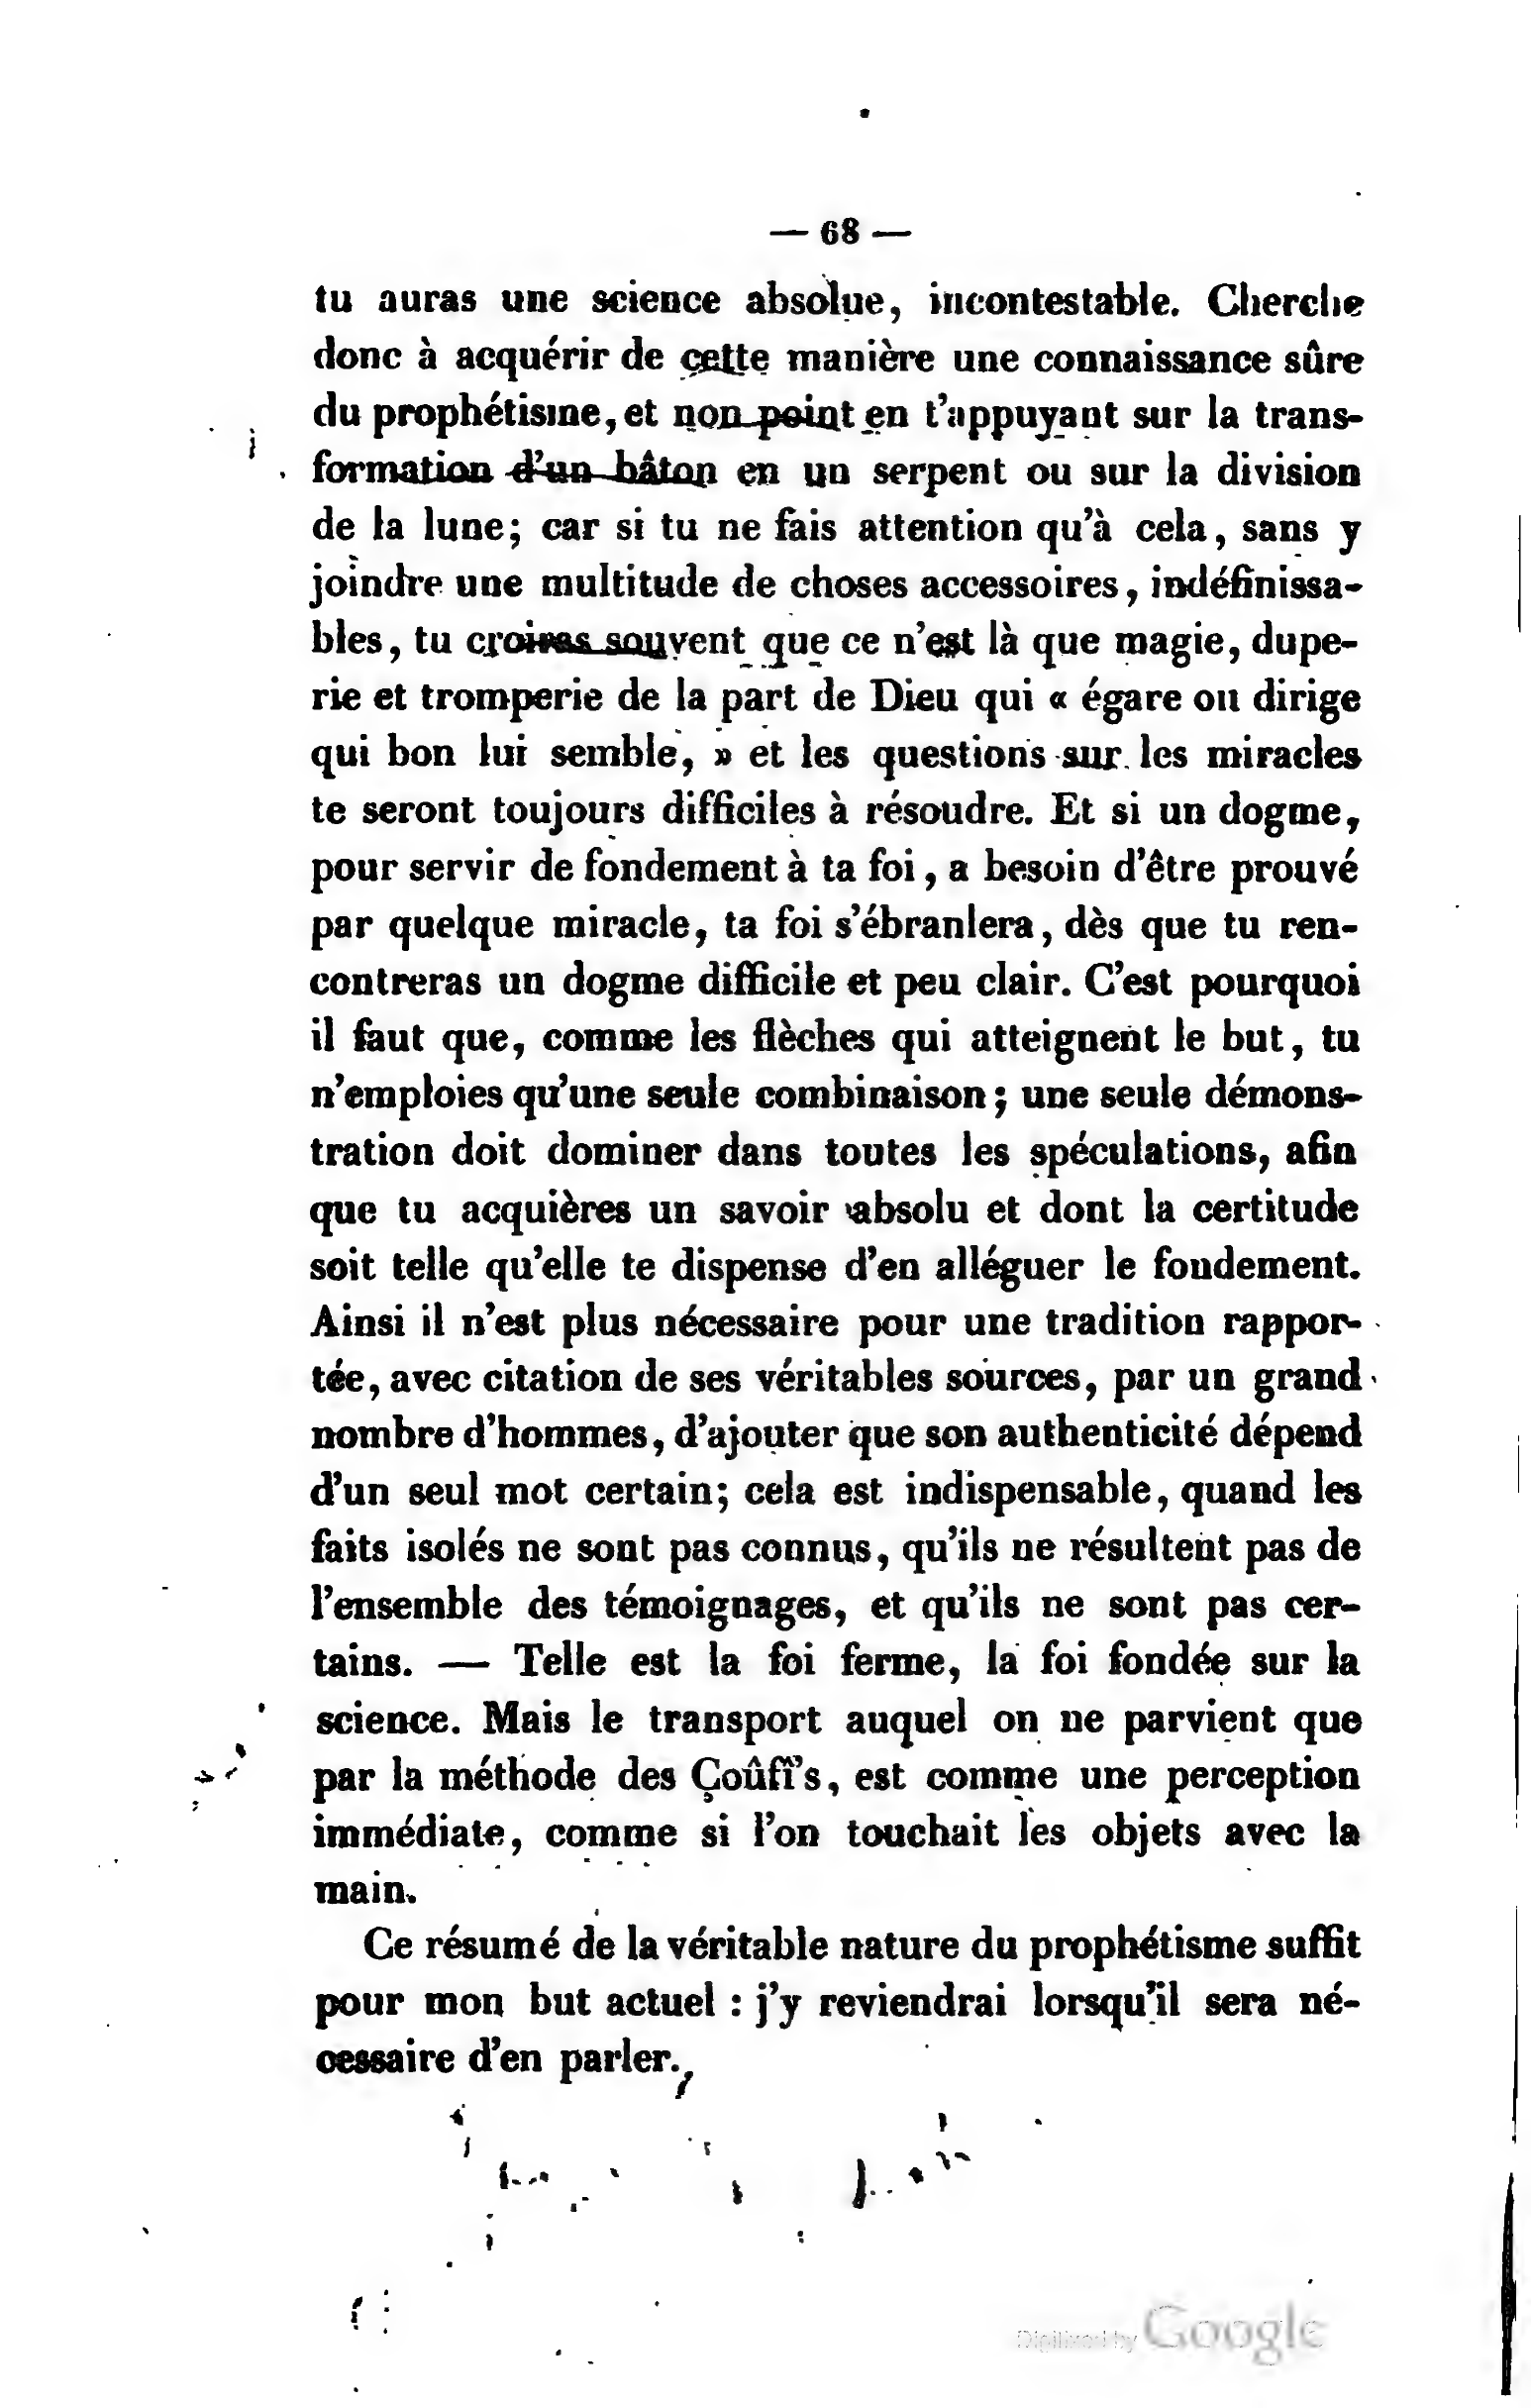 — 68 —
tu auras une science absolue, incontestable. Cherche
donc à acquérir de cette manière une connaissance sûre
du prophétisme, et non point en t'appuyant sur la trans-
formation d'un bâton en un serpent ou sur la division
de la lune; car si tu ne fais attention qu'à cela, sans y
joindre une multitude de choses accessoires, indéfinissa-
bles, tu croiras souvent que ce n'est là que magie, dupe-
rie et tromperie de la part de Dieu qui « égare ou dirige
qui bon lui semble, » et les questions sur les miracles
te seront toujours difficiles à résoudre. Et si un dogme,
pour servir de fondement à ta foi, a besoin d'être prouvé
par quelque miracle, ta foi s'ébranlera, dès que tu ren-
contreras un dogme difficile et peu clair. C'est pourquoi
il faut que, comme les flèches qui atteignent le but, tu
n'emploies qu'une seule combinaison; une seule démons-
tration doit dominer dans toutes les spéculations, afin
que tu acquières un savoir absolu et dont la certitude
soit telle qu'elle te dispense d'en alléguer le fondement.
Ainsi il n'est plus nécessaire pour une tradition rappor-
tée, avec citation de ses véritables sources, par un grand
nombre d'hommes, d'ajouter que son authenticité dépend
d'un seul mot certain; cela est indispensable, quand les
faits isolés ne sont pas connus, qu'ils ne résultent pas de
l'ensemble des témoignages, et qu'ils ne sont pas cer-
tains. — Telle est la foi ferme, la foi fondée sur la
science. Mais le transport auquel on ne parvient que
par la méthode des Çoûfî's, est comme une perception
immédiate, comme si l'on touchait les objets avec la
main.
Ce résumé de la véritable nature du prophétisme suffit
pour mon but actuel : j'y reviendrai lorsqu'il sera né-
cessaire d'en parler.
Digitized by Google